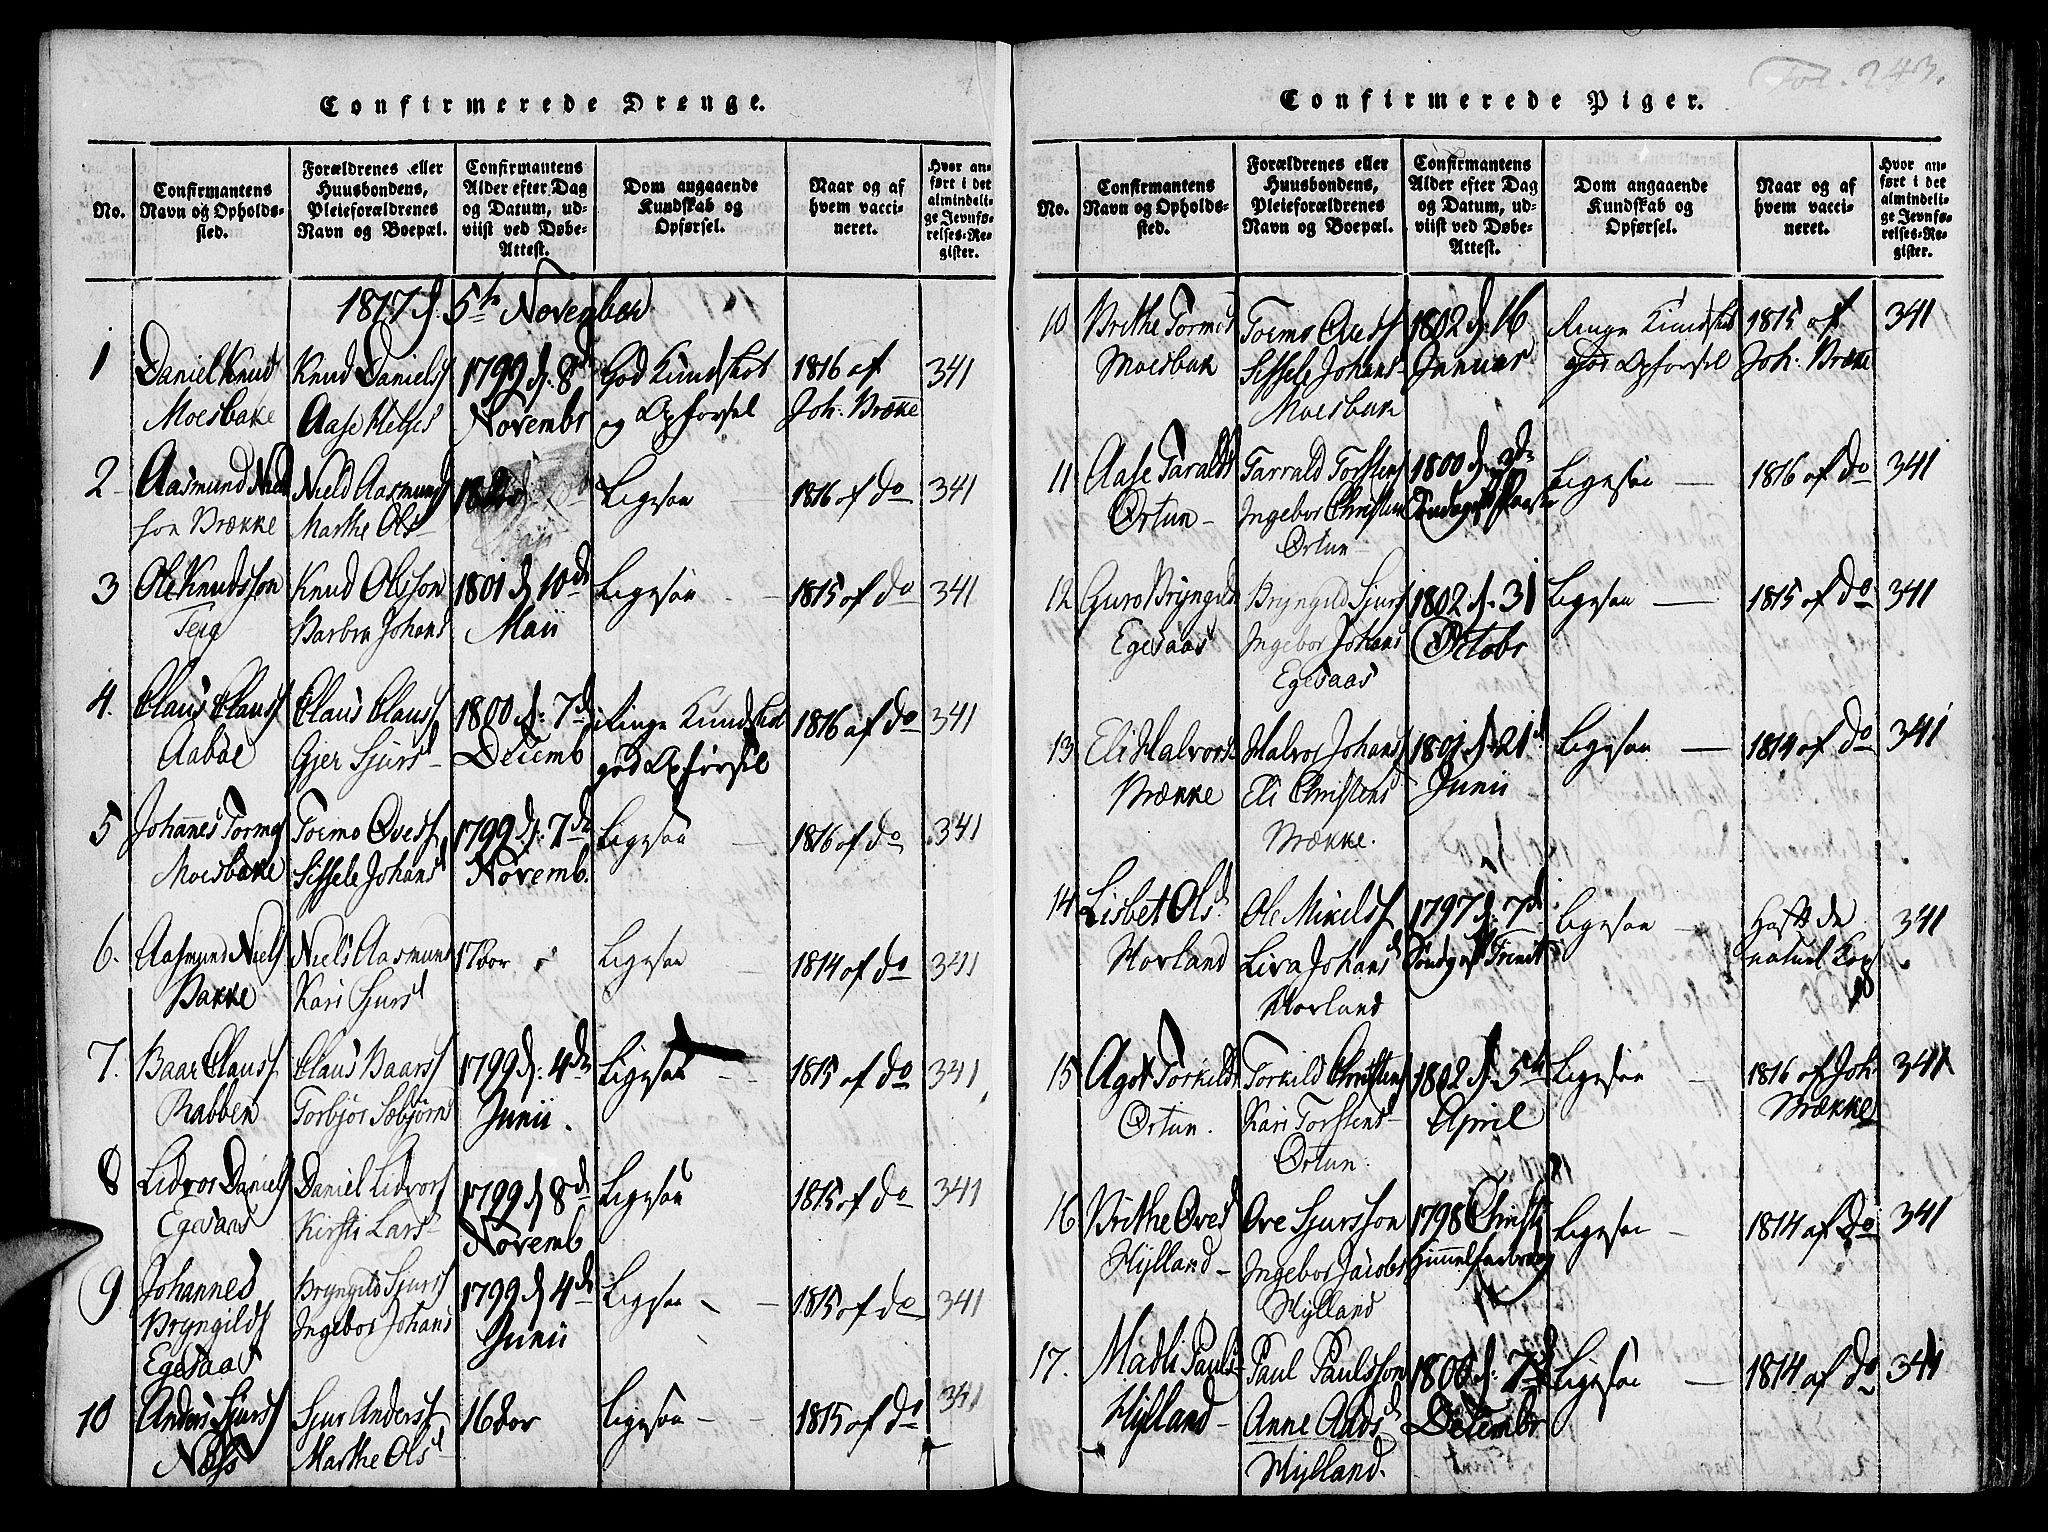 Fol. 243.
Confirmerede Drenge.
No.
Confirmantens Navn og Opholdssted.
Forældrenes eller Huusbondens, Pleieforældrenes Navn og Boepæl.
Confirmantens Alder efter Dag og Datum, udviist ved Døbe-Attest.
Dom angaaende Kundskab og Opførsel.
Naar og af hvem vaccineret.
Hvor anført i det almindelige Jevnførelses-Register.
1817 d. 5te November
1 Daniel Knud Moesbake
Knud Daniels Aase
1799 d: 8d Novembr
God Kundskab og Opførsel
1816 af Joh. Brække
341
2 Aasmund Niels son Brække
Niels Aasmunds Marthe Ols
Ligesaa
1816 af do
341
3 Ole Knudsson Teig
Knud Olsson Barbra Johans
1801 d 10de Maii
Ligesaa
1815 af do
341
4. Claus Clauss Aabøe
Claus Clauss Gjer Sjurs
1800 d: 7d Decemb
Ringe Kundskab god Opførsel
1816 af do
341
5 Johannes Tormos Moesbake
Tormo Oveds Sissele Johans
1799 d: 7de Novemb.
Ligesaa
1816 af do
341
6. Aasmund Niels Bakke
Niels Aasmunds Kari Sjursd
17 aar
Ligesaa
1814 af do
341
7. Baar Clauss Rabben
Claus Baars Torbjør Sæbjørns
1799 d: 4de Junii.
Ligesaa
1815 af do
341
8 Lidvor Daniels Egesaas
Daniel Lidvors Kirsti Lars
1799 d 8d Novemb
Ligesaa
1815 af do
341
9 Johannes Bryngilds Egesaas
Bryngild Sjurs Ingebor Johans
1799 d 4de Junii
Ligesaa
1815 af do
341
10 Anders Sjurss Næss
Sjur Anderss Marthe Olsd
16 aar
Ligesaa
1815 af do
341
Confirmerede Piger.
No.
Confirmantens Navn og Opholdssted.
Forældrenes eller Huusbondens, Pleieforældrenes Navn og Boepæl.
Confirmantens Alder efter Dag og Datum, udviist ved Døbe-Attest.
Dom angaaende Kundskab og Opførsel.
Naar og af hvem vaccineret.
Hvor anført i det almindelige Jevnførelses-Register.
10 Brithe Tormos Moesbak
Tormo Oveds Sissele Johans Moesbak
1802 d: 16 Januar
Ringe Kundskab god Opførsel
1815 af Joh. Brække
341
11 Aase Taralds Ørtun
Tarrald Torstens Ingebor Christens Ørtun
1800 d. 2d
Ligesaa
1816 af do
341
12 Guro Bryngilds Egesaas
Bryngild Sjurs Ingebor Johans Egesaas
1802 d. 31 Octobr
Ligesaa
1815 af do
341
13 Eli Halvors Brække
Halvor Johans Eli Christens Brække.
1801 d. 21d Junii
Ligesaa
1814 af do
341
14 Lisbet Olsd Horland
Ole Mikels Liva Johans Horland
1797 d: 7d Søndag af Trinit
Ligesaa
Haft de naturl. Kop
341
15 Agot Torkilds Ørtun.
Torkild Christens Kari Torstens Ørtun.
1802 d 5te April
Ligesaa
1816 af Joh. Brække
341
16 Brithe Oves Hylland
Ove Sjursson Ingebor Jacobs Hylland
1798 Christi Himmelfart
Ligesaa
1814 af do
341
17. Madli Pauls Hylland
Paul Paulsson Anne Andsd Hylland.
1800 d: 7d Decembr
Ligesaa
1814 af do
341